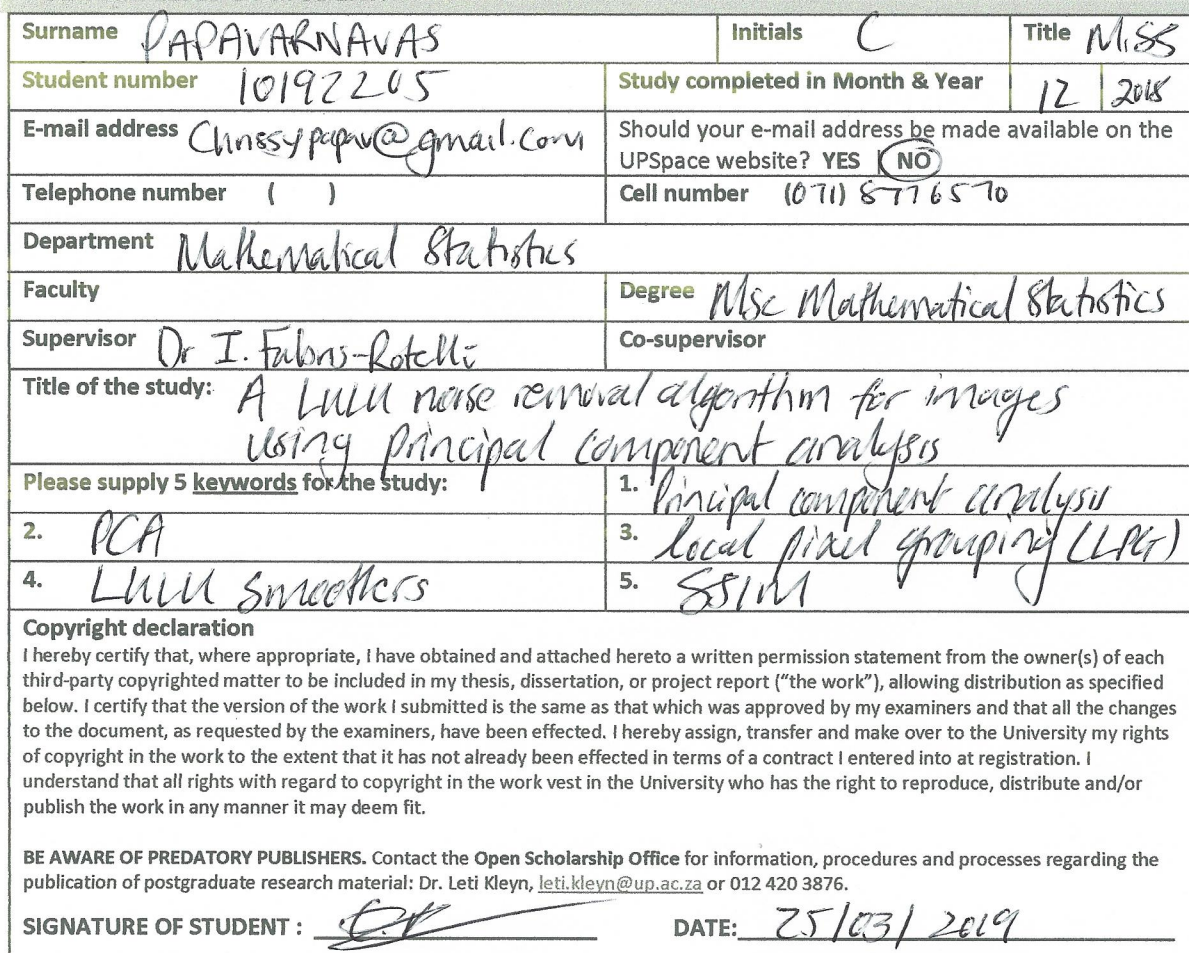 Surname PAPAVARNAVAS Initials C Title Miss
Student number 10192205 Study completed in Month & Year 12 2018
E-mail address Chrissypapav@gmail.com Should your e-mail address be made available on the
UPSpace website? YES NO
Telephone number ( ) Cell number (071) 8776570
Department Mathematical Statistics
Faculty Degree Msc Mathematical Statistics
Supervisor Dr I. Fabris-Rotelli Co-supervisor
Title of the study: A LULU noise removal algorithm for images
using principal component analysis
Please supply 5 keywords for the study: 1. Principal component analysis
2. PCA 3. local pixel grouping (LPG)
4. LULU smoothers 5. SSIM
Copyright declaration
I hereby certify that, where appropriate, I have obtained and attached hereto a written permission statement from the owner(s) of each
third-party copyrighted matter to be included in my thesis, dissertation, or project report ("the work"), allowing distribution as specified
below. I certify that the version of the work I submitted is the same as that which was approved by my examiners and that all the changes
to the document, as requested by the examiners, have been effected. I hereby assign, transfer and make over to the University my rights
of copyright in the work to the extent that it has not already been effected in terms of a contract I entered into at registration. I
understand that all rights with regard to copyright in the work vest in the University who has the right to reproduce, distribute and/or
publish the work in any manner it may deem fit.
BE AWARE OF PREDATORY PUBLISHERS. Contact the Open Scholarship Office for information, procedures and processes regarding the
publication of postgraduate research material: Dr. Leti Kleyn, leti.kleyn@up.ac.za or 012 420 3876.
SIGNATURE OF STUDENT : DATE: 25/03/2019